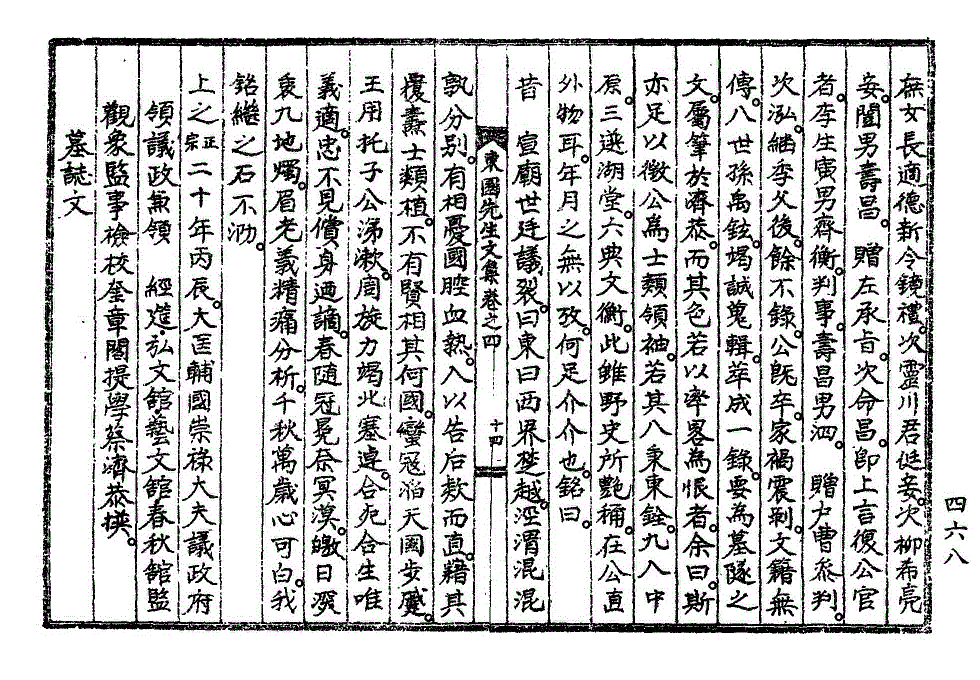 庶女長適德新令鏡禮。次靈川君侹妾。次柳希亮
妾。闇男壽昌。 贈左承旨。次命昌。卽上言復公官
者。李生寅男齊衡。判事。壽昌男泗。 贈戶曹叅判。
次泓。繼季父後。餘不錄。公旣卒。家禍震剝。文籍無
傳。八世孫禹鉉。竭誠蒐輯。萃成一錄。要爲墓隧之
文。屬筆於濟恭。而其色若以率畧爲恨者。余曰。斯
亦足以徵公爲士類領袖。若其八秉東銓。九入中
原。三選湖堂。六典文衡。此雖野史所艶稱。在公直
外物耳。年月之無以攷。何足介介也。銘曰。
昔 宣廟世廷議裂。曰東曰西界埜越。涇渭混混
東園先生文集卷之四 十四
孰分別。有相憂國腔血熱。入以告后欵而直。藉其
覆燾士類植。不有賢相其何國。蠻寇滔天國步蹙。
王用托子公涕漱。周旋力竭北塞遽。合死合生唯
義適。忠不見償身迺謫。春隨冠冕奈冥漠。皦日深
衷九地燭。眉老義精痛分析。千秋萬歲心可白。我
銘繼之石不泐。
上之正宗二十年丙辰。大匡輔國崇祿大夫議政府
領議政兼領 經筵,弘文館,藝文館,春秋館監
觀象監事檢校奎章閣提學蔡濟恭撰。
墓誌文
四六八